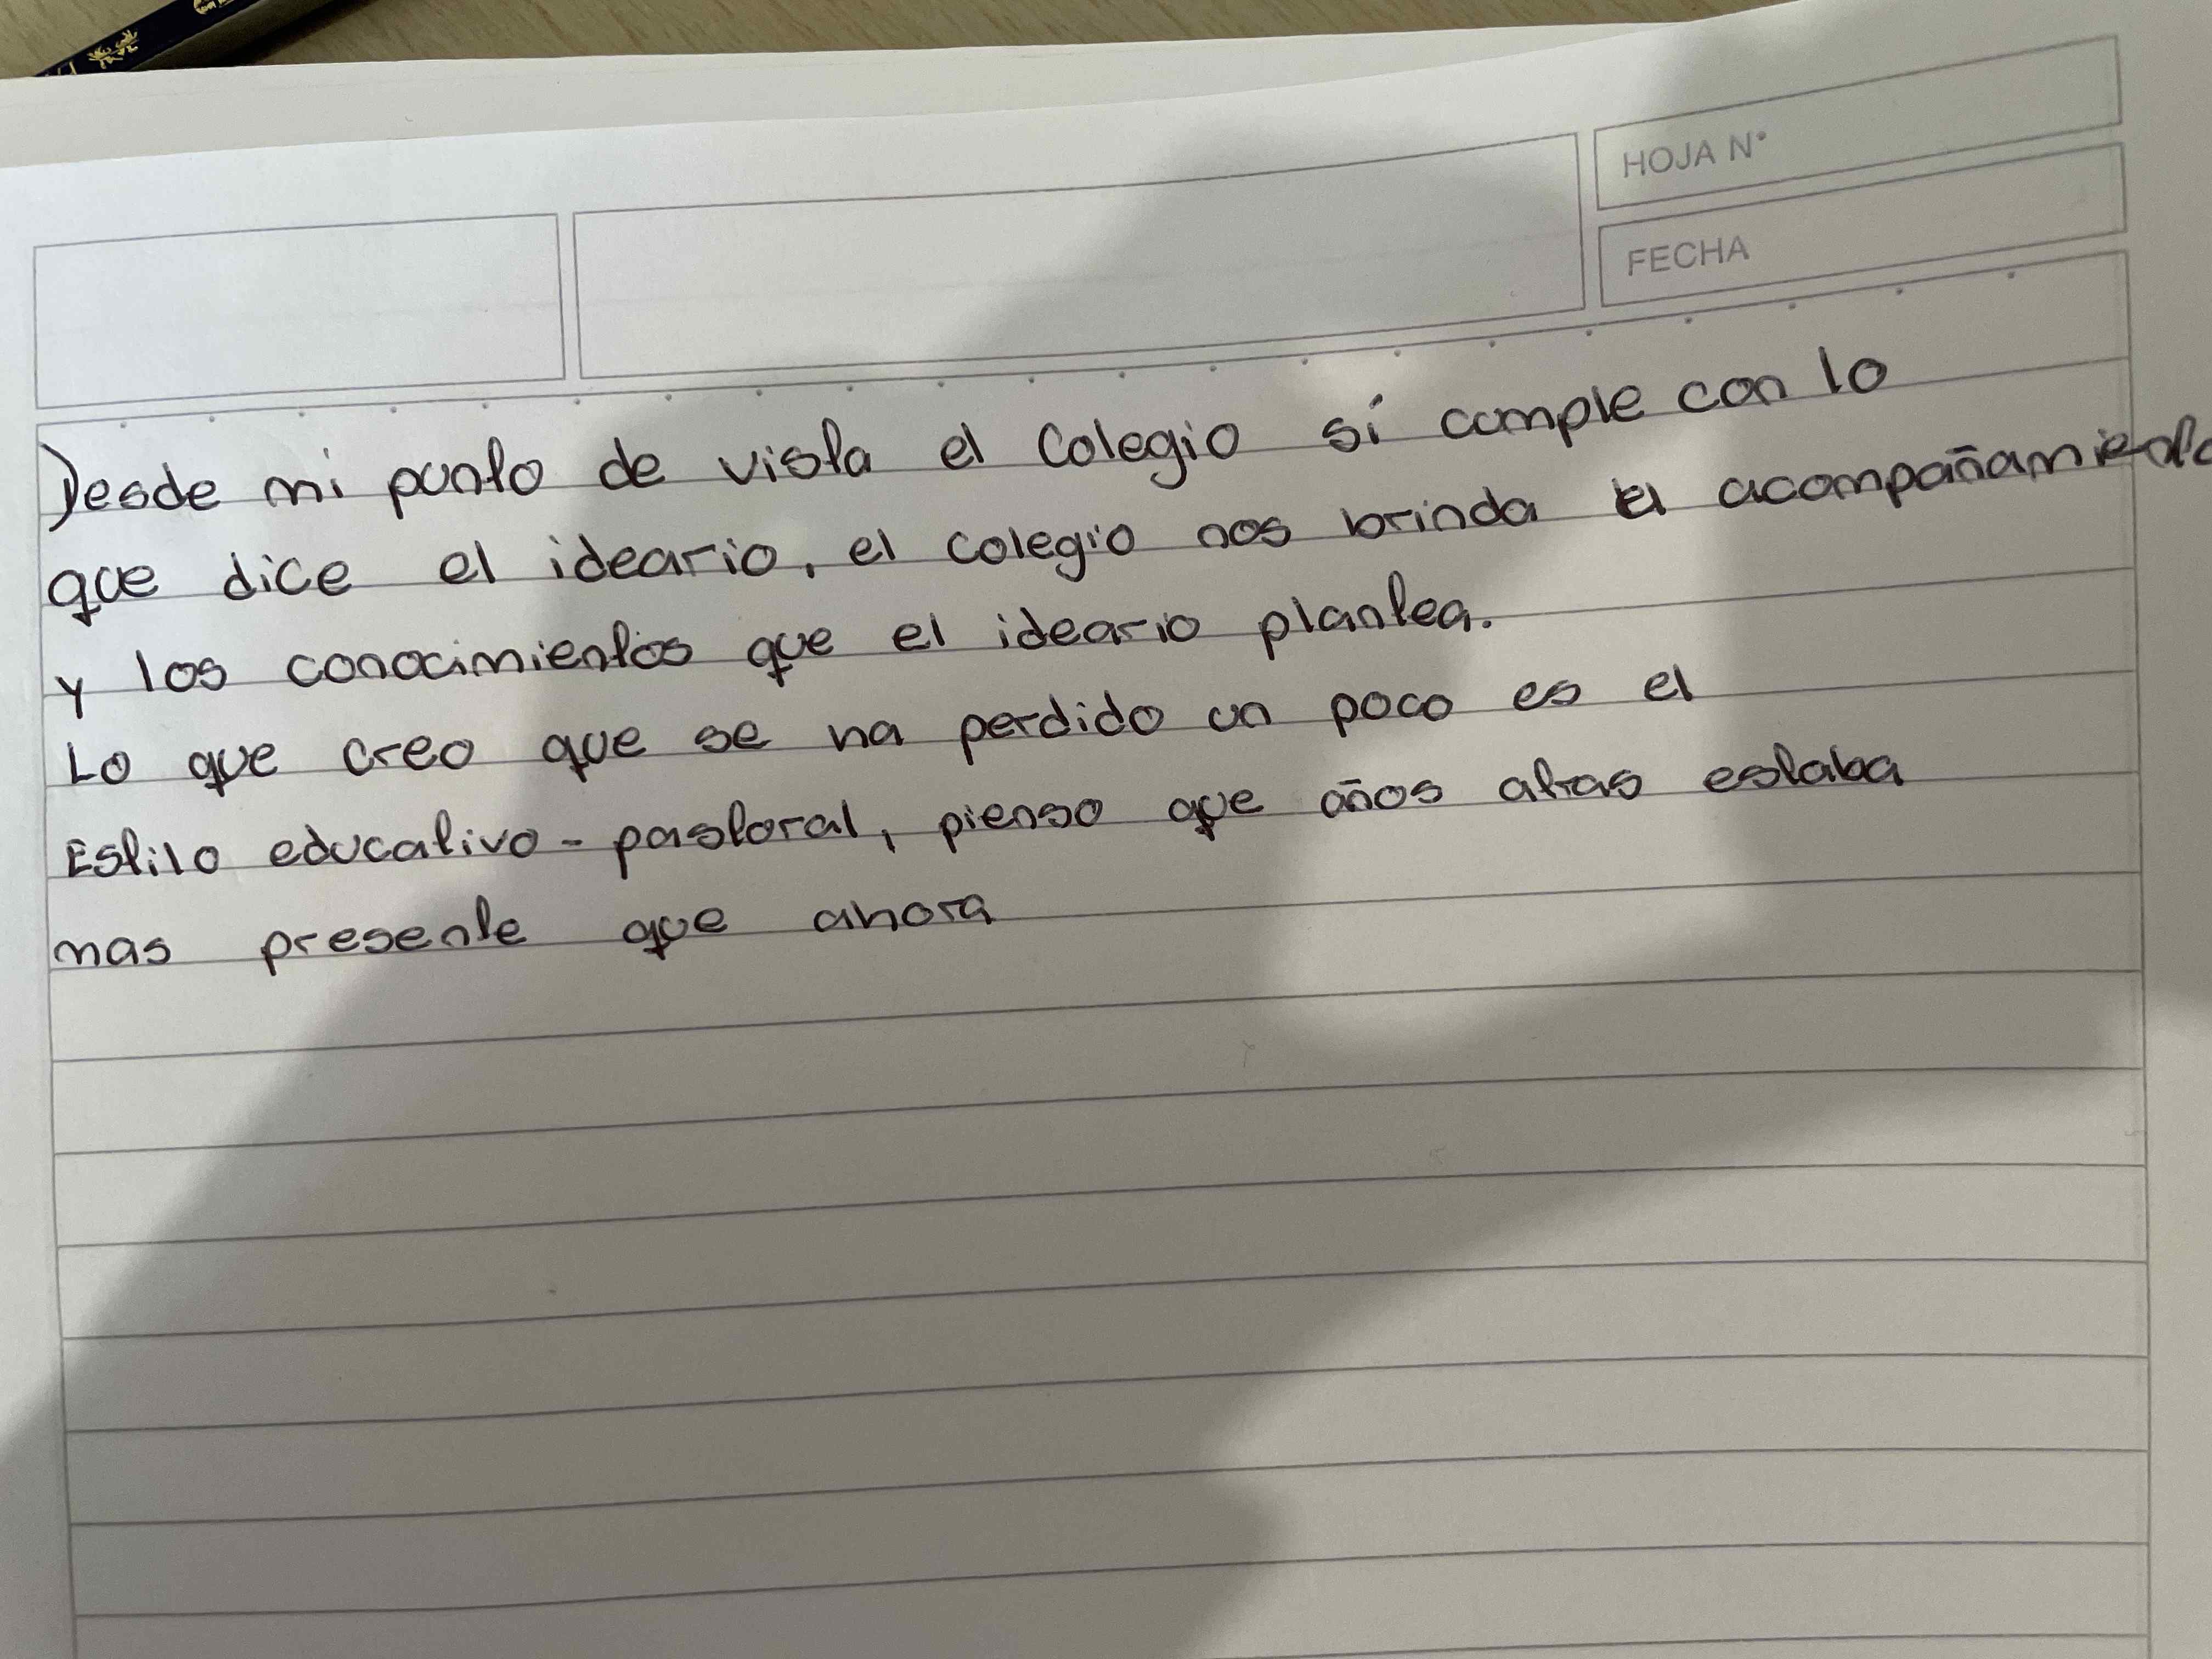 HOJA N°
FECHA
Desde mi punto de vista el Colegio sí cumple con lo
que dice el ideario, el colegio nos brinda el acompañamiento
y los conocimientos que el ideario plantea.
Lo que creo que se ha perdido un poco es el
Estilo educativo - pastoral, pienso que años atras estaba
mas presente que ahora